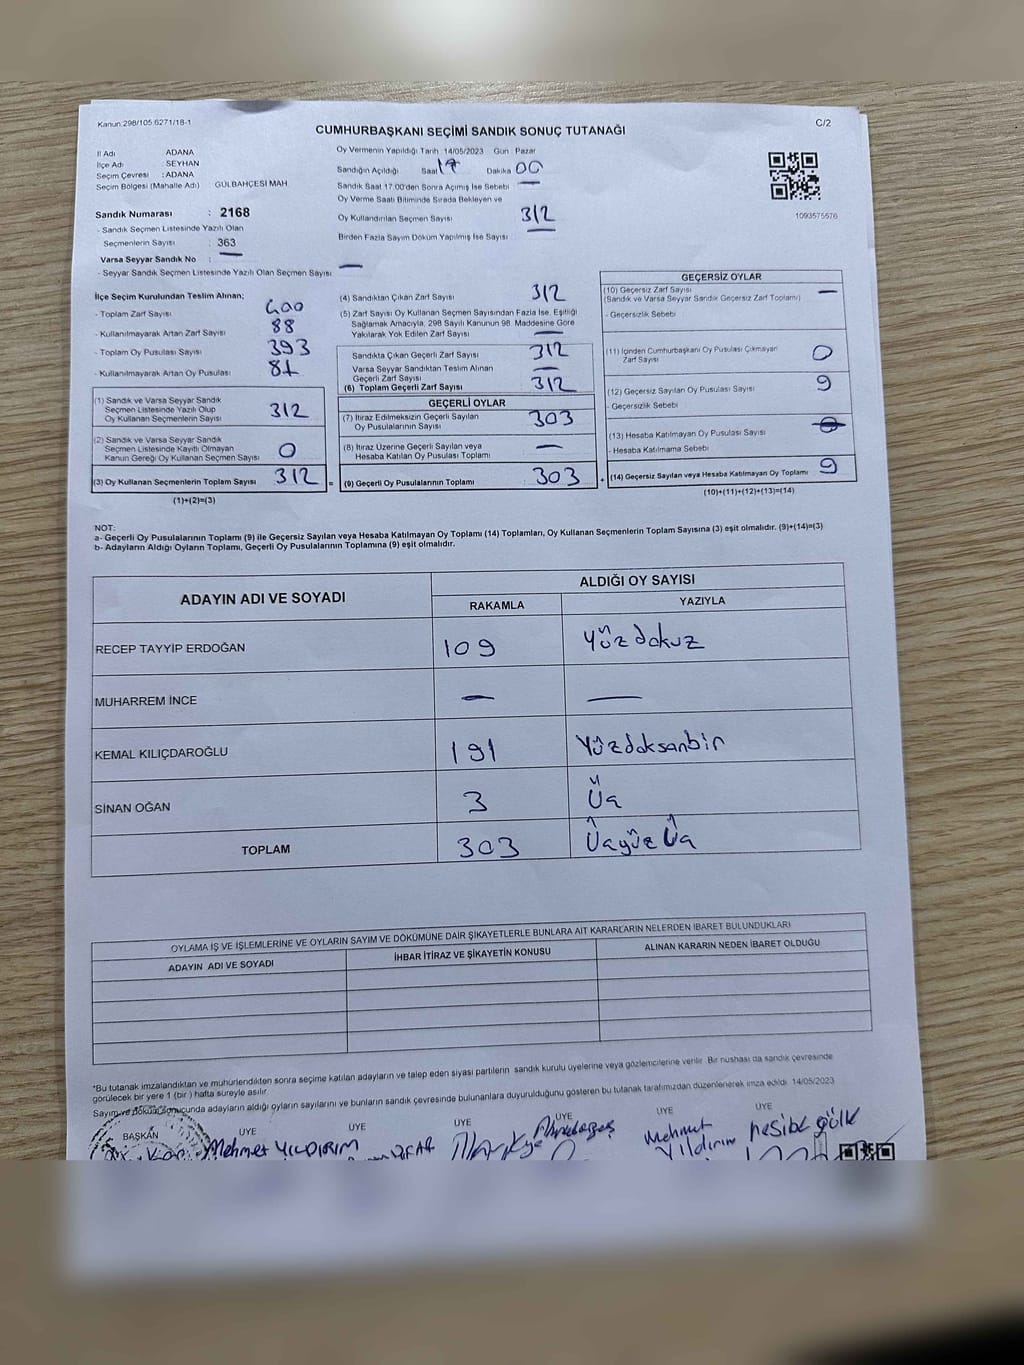 Kanun:298/105.6271/18-1
CUMHURBAŞKANI SEÇİMİ SANDIK SONUÇ TUTANAĞI
C/2
İl Adı ADANA
İlçe Adı : SEYHAN
Seçim Çevresi : ADANA
Seçim Bölgesi (Mahalle Adı) GÜLBAHÇESİ MAH
Sandık Numarası : 2168
- Sandık Seçmen Listesinde Yazılı Olan
Seçmenlerin Sayısı : 363
Varsa Seyyar Sandık No : —
- Seyyar Sandık Seçmen Listesinde Yazılı Olan Seçmen Sayısı : —
Oy Vermenin Yapıldığı Tarih 14/05/2023 Gün : Pazar
Sandığın Açıldığı Saat 17 Dakika 00
Sandık Saat 17.00'den Sonra Açımış İse Sebebi —
Oy Verme Saati Bitiminde Sırada Bekleyen ve
Oy Kullandırılan Seçmen Sayısı 312
Birden Fazla Sayım Döküm Yapılmış İse Sayısı —
1093575576
İlçe Seçim Kurulundan Teslim Alınan;
- Toplam Zarf Sayısı : 400
- Kullanılmayarak Artan Zarf Sayısı : 88
- Toplam Oy Pusulası Sayısı : 393
- Kullanılmayarak Artan Oy Pusulası : 81
(1) Sandık ve Varsa Seyyar Sandık
Seçmen Listesinde Yazılı Olup
Oy Kullanan Seçmenlerin Sayısı : 312
(2) Sandık ve Varsa Seyyar Sandık
Seçmen Listesinde Kayıtlı Olmayan
Kanun Gereği Oy Kullanan Seçmen Sayısı : 0
(3) Oy Kullanan Seçmenlerin Toplam Sayısı : 312
(1)+(2)=(3)
(4) Sandıktan Çıkan Zarf Sayısı : 312
(5) Zarf Sayısı Oy Kullanan Seçmen Sayısından Fazla İse, Eşitliği
Sağlamak Amacıyla, 298 Sayılı Kanunun 98. Maddesine Göre
Yakılarak Yok Edilen Zarf Sayısı —
Sandıkta Çıkan Geçerli Zarf Sayısı : 312
Varsa Seyyar Sandıktan Teslim Alınan
Geçerli Zarf Sayısı : —
(6) Toplam Geçerli Zarf Sayısı : 312
GEÇERLİ OYLAR
(7) İtiraz Edilmeksizin Geçerli Sayılan
Oy Pusulalarının Sayısı : 303
(8) İtiraz Üzerine Geçerli Sayılan veya
Hesaba Katılan Oy Pusulası Toplamı : —
= (9) Geçerli Oy Pusulalarının Toplamı : 303
GEÇERSİZ OYLAR
(10) Geçersiz Zarf Sayısı : —
(Sandık ve Varsa Seyyar Sandık Geçersiz Zarf Toplamı)
- Geçersizlik Sebebi
(11) İçinden Cumhurbaşkanı Oy Pusulası Çıkmayan
Zarf Sayısı : 0
(12) Geçersiz Sayılan Oy Pusulası Sayısı : 9
- Geçersizlik Sebebi
(13) Hesaba Katılmayan Oy Pusulası Sayısı
- Hesaba Katılmama Sebebi
+ (14) Geçersiz Sayılan veya Hesaba Katılmayan Oy Toplamı : 9
(10)+(11)+(12)+(13)=(14)
NOT:
a- Geçerli Oy Pusulalarının Toplamı (9) ile Geçersiz Sayılan veya Hesaba Katılmayan Oy Toplamı (14) Toplamları, Oy Kullanan Seçmenlerin Toplam Sayısına (3) eşit olmalıdır. (9)+(14)=(3)
b- Adayların Aldığı Oyların Toplamı, Geçerli Oy Pusulalarının Toplamına (9) eşit olmalıdır.
ADAYIN ADI VE SOYADI ALDIĞI OY SAYISI
RAKAMLA YAZIYLA
RECEP TAYYİP ERDOĞAN 109 Yüzdokuz
MUHARREM İNCE — —
KEMAL KILIÇDAROĞLU 191 Yüzdoksanbir
SİNAN OĞAN 3 Üç
TOPLAM 303 Üçyüz Üç
OYLAMA İŞ VE İŞLEMLERİNE VE OYLARIN SAYIM VE DÖKÜMÜNE DAİR ŞİKAYETLERLE BUNLARA AİT KARARLARIN NELERDEN İBARET BULUNDUKLARI
ADAYIN ADI VE SOYADI İHBAR İTİRAZ VE ŞİKAYETİN KONUSU ALINAN KARARIN NEDEN İBARET OLDUĞU
*Bu tutanak imzalandıktan ve mühürlendikten sonra seçime katılan adayların ve talep eden siyasi partilerin sandık kurulu üyelerine veya gözlemcilerine verilir. Bir nüshası da sandık çevresinde
görülecek bir yere 1 (bir ) hafta süreyle asılır.
Sayım ve döküm sonucunda adayların aldığı oyların sayılarını ve bunların sandık çevresinde bulunanlara duyurulduğunu gösteren bu tutanak tarafımızdan düzenlenerek imza edildi. 14/05/2023
BAŞKAN ÜYE ÜYE ÜYE ÜYE ÜYE ÜYE
Mehmet YILDIRIM
Mehmet Yıldırım
Nesibe Gölk